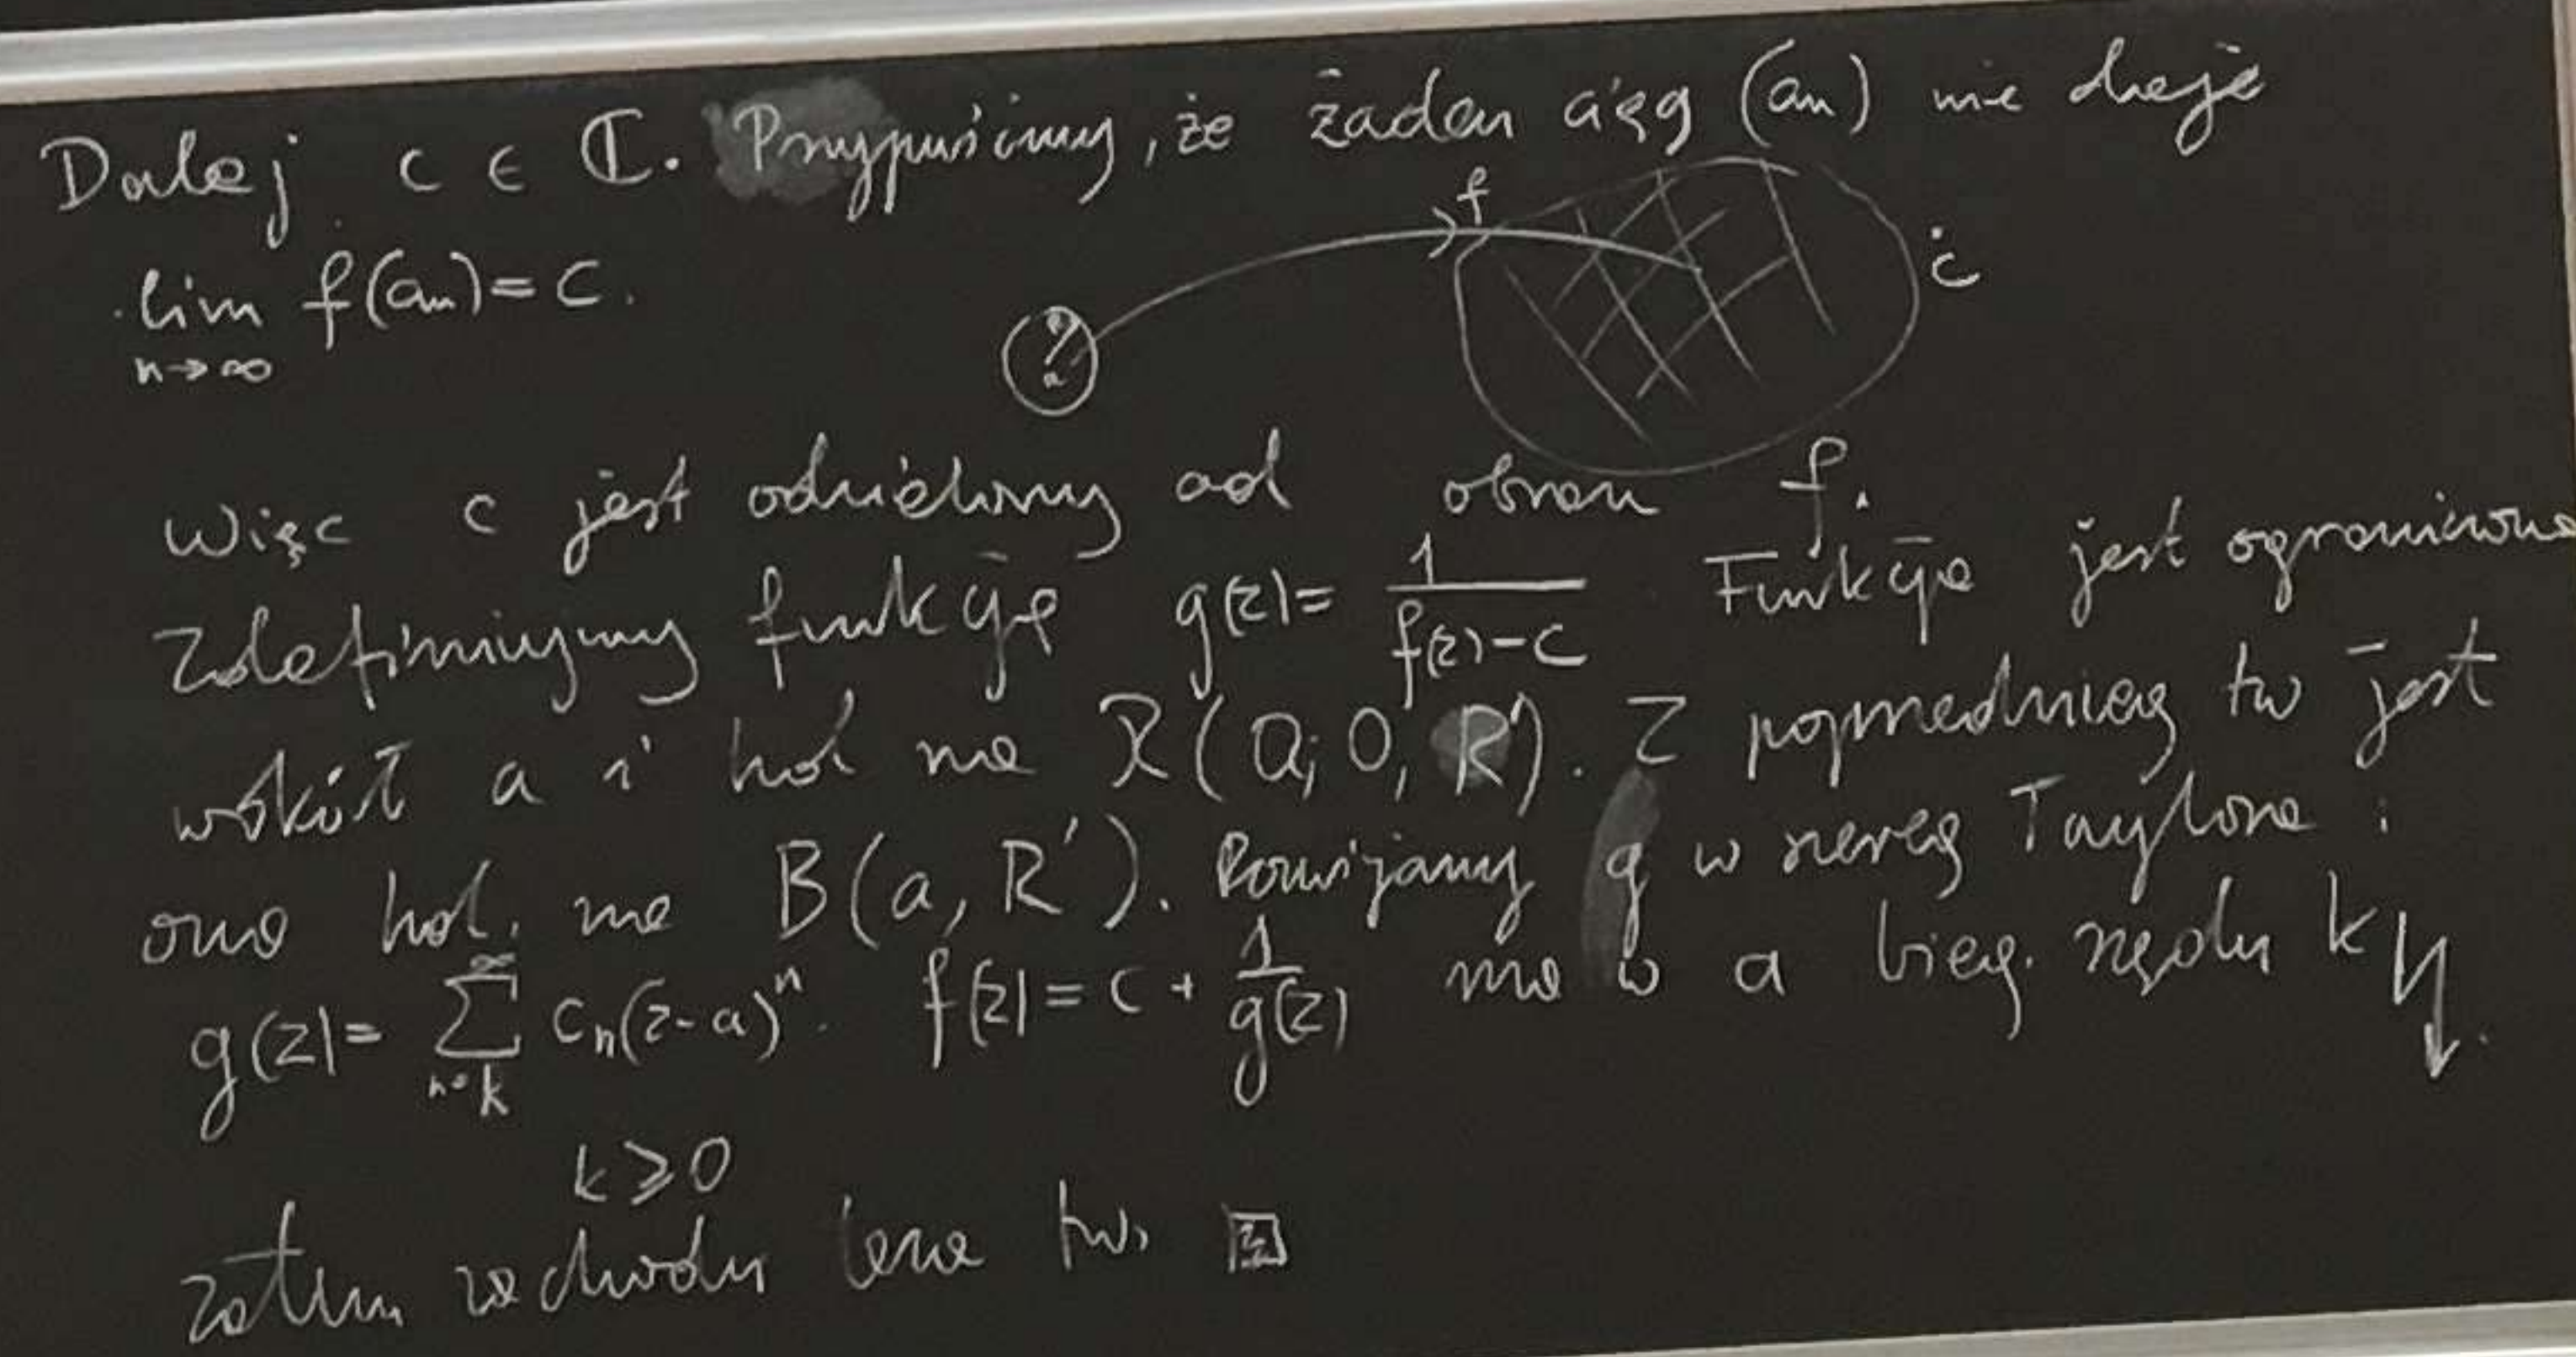 Dalej c ∈ ℂ. Przypuśćmy, że żaden ciąg (aₙ) nie daje
lim f(aₙ) = c.
n→∞
f
ċ
a
Więc c jest oddzielony od obrazu f.
Zdefiniujmy funkcję g(z) = 1/(f(z)-c) Funkcja jest ograniczona
wokół a i hol na R(a; 0, R'). Z poprzedniego tw jest
ona hol. na B(a, R'). Rozwijamy g w szereg Taylora :
g(z) = ∑_{n=k}^{∞} cₙ(z-a)ⁿ. f(z) = c + 1/g(z) ma w a bieg. rzędu k ↯.
k ⩾ 0
Zatem zachodzi teza tw.